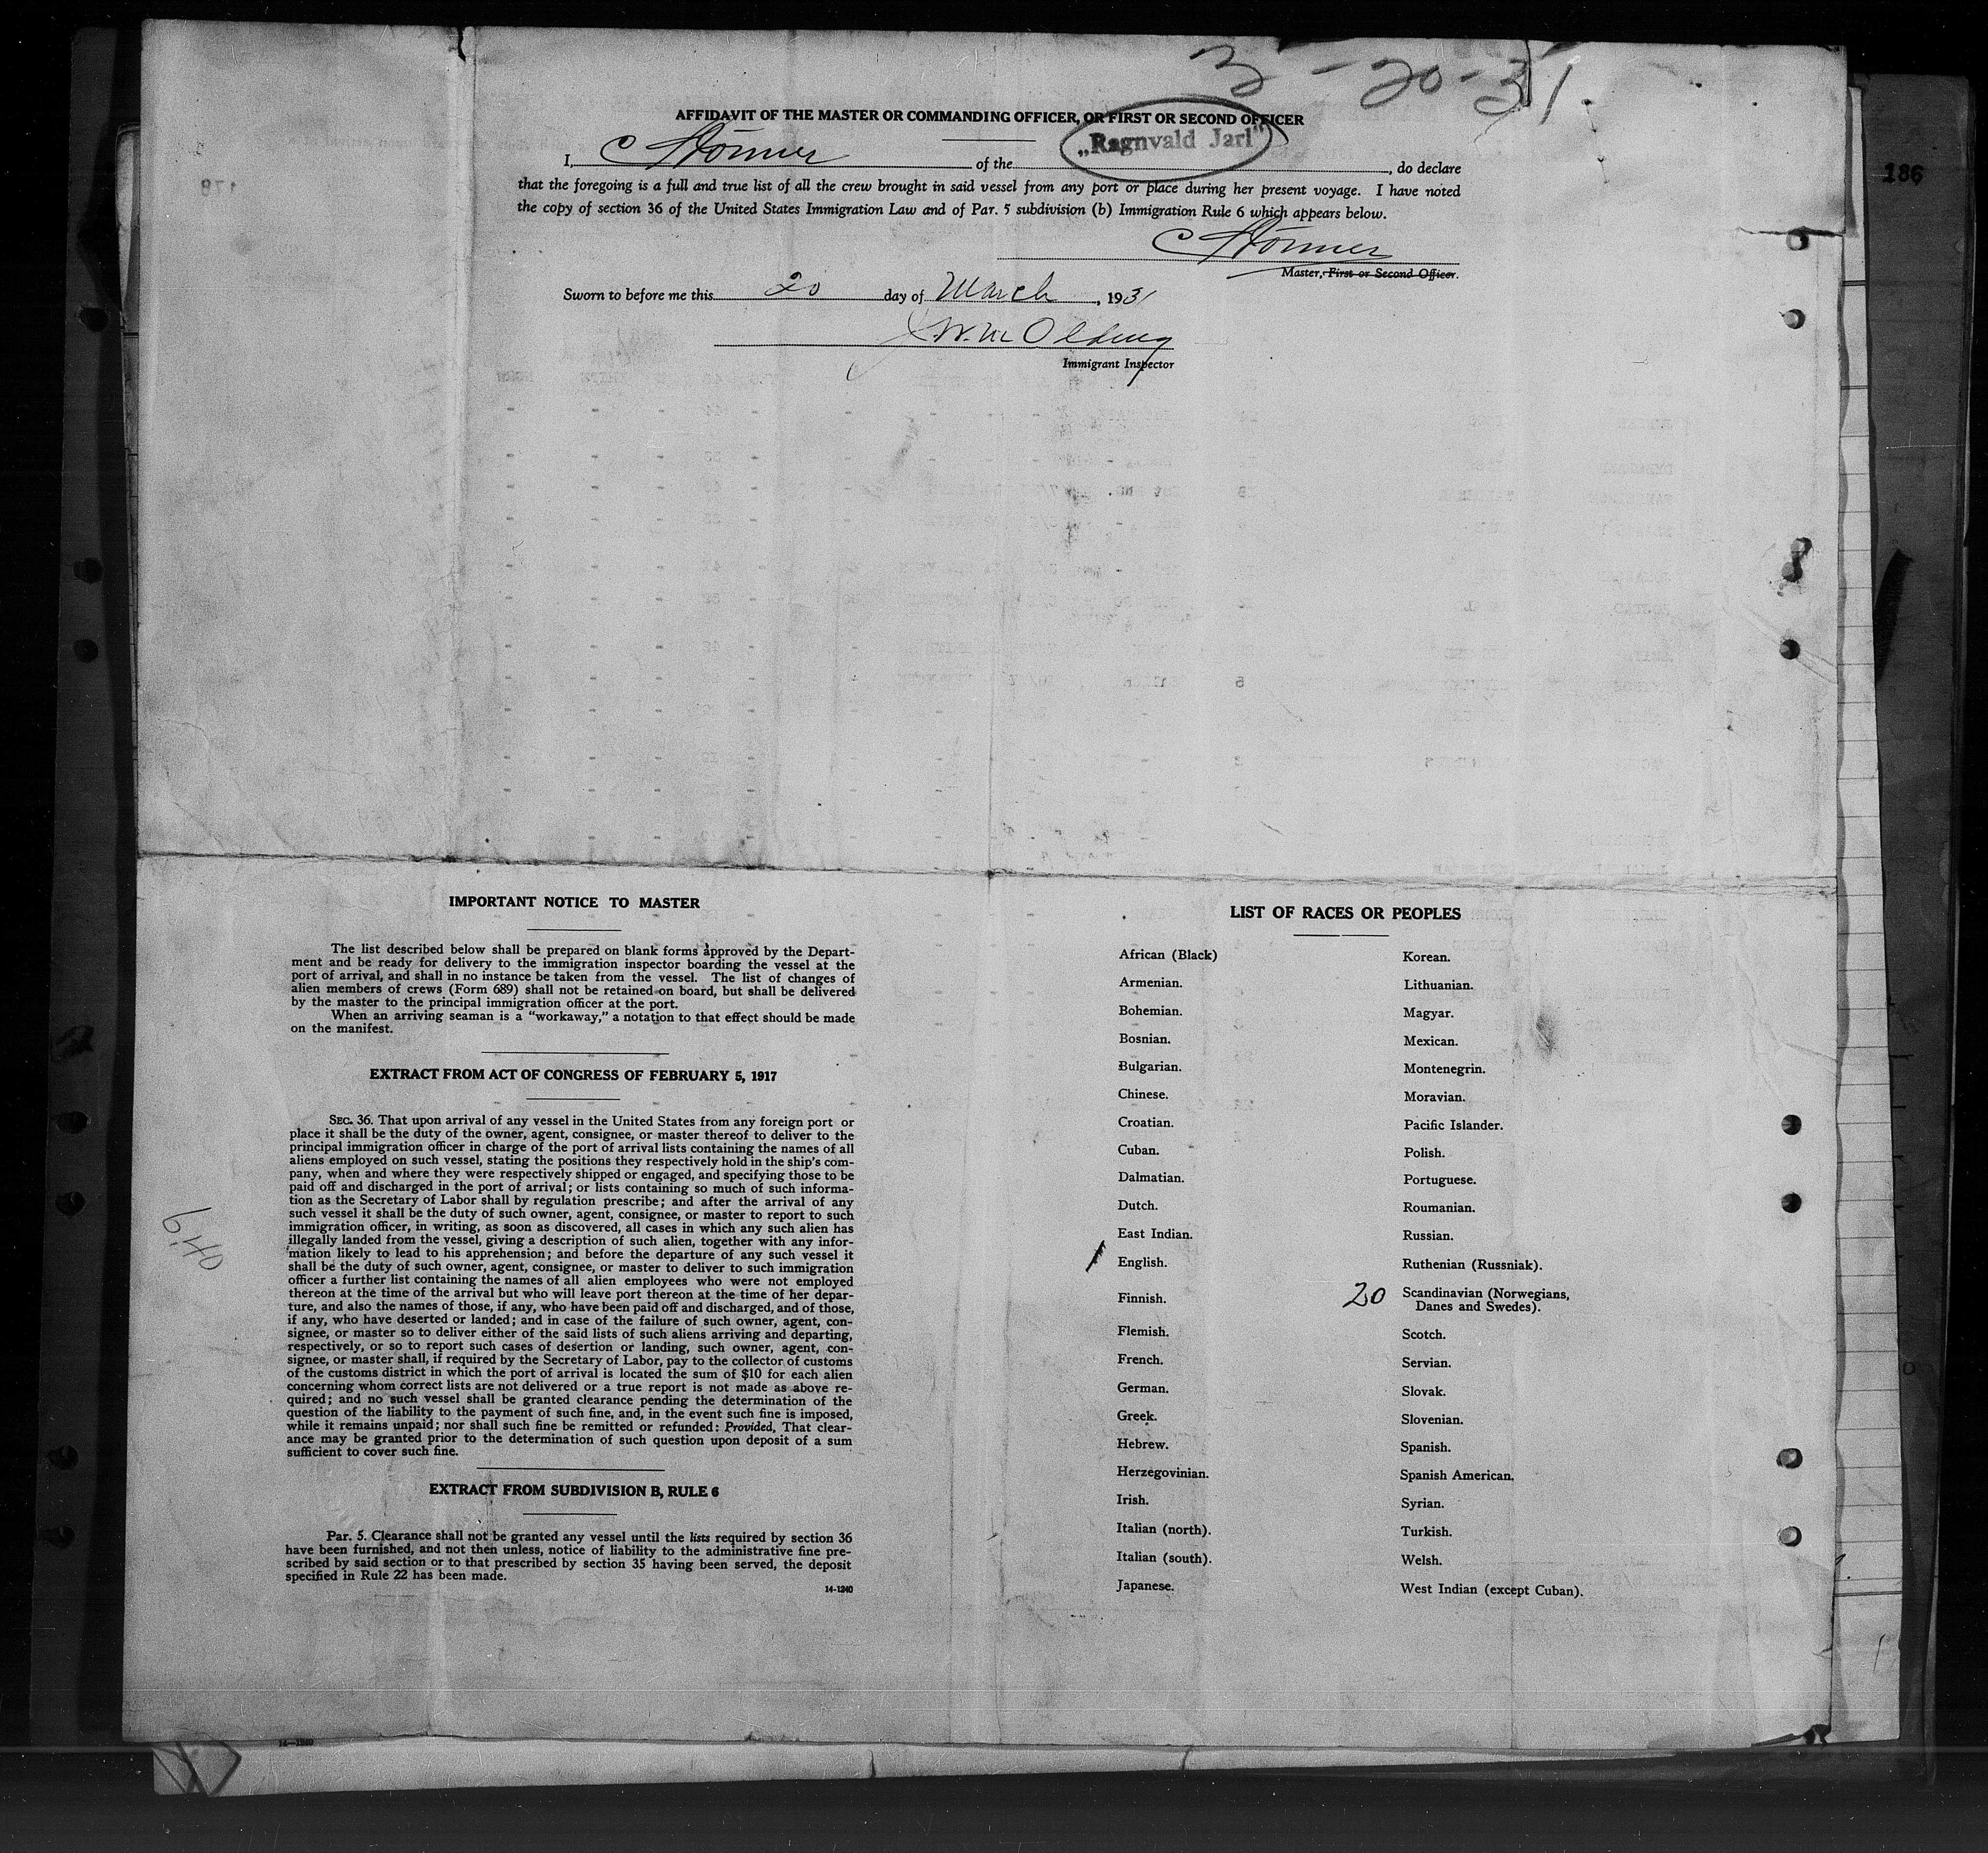 3-20-31
AFFIDAVIT OF THE MASTER OR COMMANDING OFFICER, OR FIRST OR SECOND OFFICER
I, C Stömer of the „Ragnvald Jarl", do declare
that the foregoing is a full and true list of all the crew brought in said vessel from any port or place during her present voyage. I have noted
the copy of section 36 of the United States Immigration Law and of Par. 5 subdivision (b) Immigration Rule 6 which appears below.
C Stömer
Master, First or Second Officer.
Sworn to before me this 20 day of March, 1931
Immigrant Inspector
186
IMPORTANT NOTICE TO MASTER
The list described below shall be prepared on blank forms approved by the Depart-
ment and be ready for delivery to the immigration inspector boarding the vessel at the
port of arrival, and shall in no instance be taken from the vessel. The list of changes of
alien members of crews (Form 689) shall not be retained on board, but shall be delivered
by the master to the principal immigration officer at the port.
When an arriving seaman is a “workaway,” a notation to that effect should be made
on the manifest.
EXTRACT FROM ACT OF CONGRESS OF FEBRUARY 5, 1917
SEC. 36. That upon arrival of any vessel in the United States from any foreign port or
place it shall be the duty of the owner, agent, consignee, or master thereof to deliver to the
principal immigration officer in charge of the port of arrival lists containing the names of all
aliens employed on such vessel, stating the positions they respectively hold in the ship's com-
pany, when and where they were respectively shipped or engaged, and specifying those to be
paid off and discharged in the port of arrival; or lists containing so much of such informa-
tion as the Secretary of Labor shall by regulation prescribe; and after the arrival of any
such vessel it shall be the duty of such owner, agent, consignee, or master to report to such
immigration officer, in writing, as soon as discovered, all cases in which any such alien has
illegally landed from the vessel, giving a description of such alien, together with any infor-
mation likely to lead to his apprehension; and before the departure of any such vessel it
shall be the duty of such owner, agent, consignee, or master to deliver to such immigration
officer a further list containing the names of all alien employees who were not employed
thereon at the time of the arrival but who will leave port thereon at the time of her depar-
ture, and also the names of those, if any, who have been paid off and discharged, and of those,
if any, who have deserted or landed; and in case of the failure of such owner, agent, con-
signee, or master so to deliver either of the said lists of such aliens arriving and departing,
respectively, or so to report such cases of desertion or landing, such owner, agent, con-
signee, or master shall, if required by the Secretary of Labor, pay to the collector of customs
of the customs district in which the port of arrival is located the sum of $10 for each alien
concerning whom correct lists are not delivered or a true report is not made as above re-
quired; and no such vessel shall be granted clearance pending the determination of the
question of the liability to the payment of such fine, and, in the event such fine is imposed,
while it remains unpaid; nor shall such fine be remitted or refunded: Provided, That clear-
ance may be granted prior to the determination of such question upon deposit of a sum
sufficient to cover such fine.
EXTRACT FROM SUBDIVISION B, RULE 6
Par. 5. Clearance shall not be granted any vessel until the lists required by section 36
have been furnished, and not then unless, notice of liability to the administrative fine pre-
scribed by said section or to that prescribed by section 35 having been served, the deposit
specified in Rule 22 has been made.
14-1240
LIST OF RACES OR PEOPLES
African (Black)
Armenian.
Bohemian.
Bosnian.
Bulgarian.
Chinese.
Croatian.
Cuban.
Dalmatian.
Dutch.
East Indian.
1 English.
Finnish.
Flemish.
French.
German.
Greek.
Hebrew.
Herzegovinian.
Irish.
Italian (north).
Italian (south).
Japanese.
Korean.
Lithuanian.
Magyar.
Mexican.
Montenegrin.
Moravian.
Pacific Islander.
Polish.
Portuguese.
Roumanian.
Russian.
Ruthenian (Russniak).
20 Scandinavian (Norwegians,
Danes and Swedes).
Scotch.
Servian.
Slovak.
Slovenian.
Spanish.
Spanish American.
Syrian.
Turkish.
Welsh.
West Indian (except Cuban).